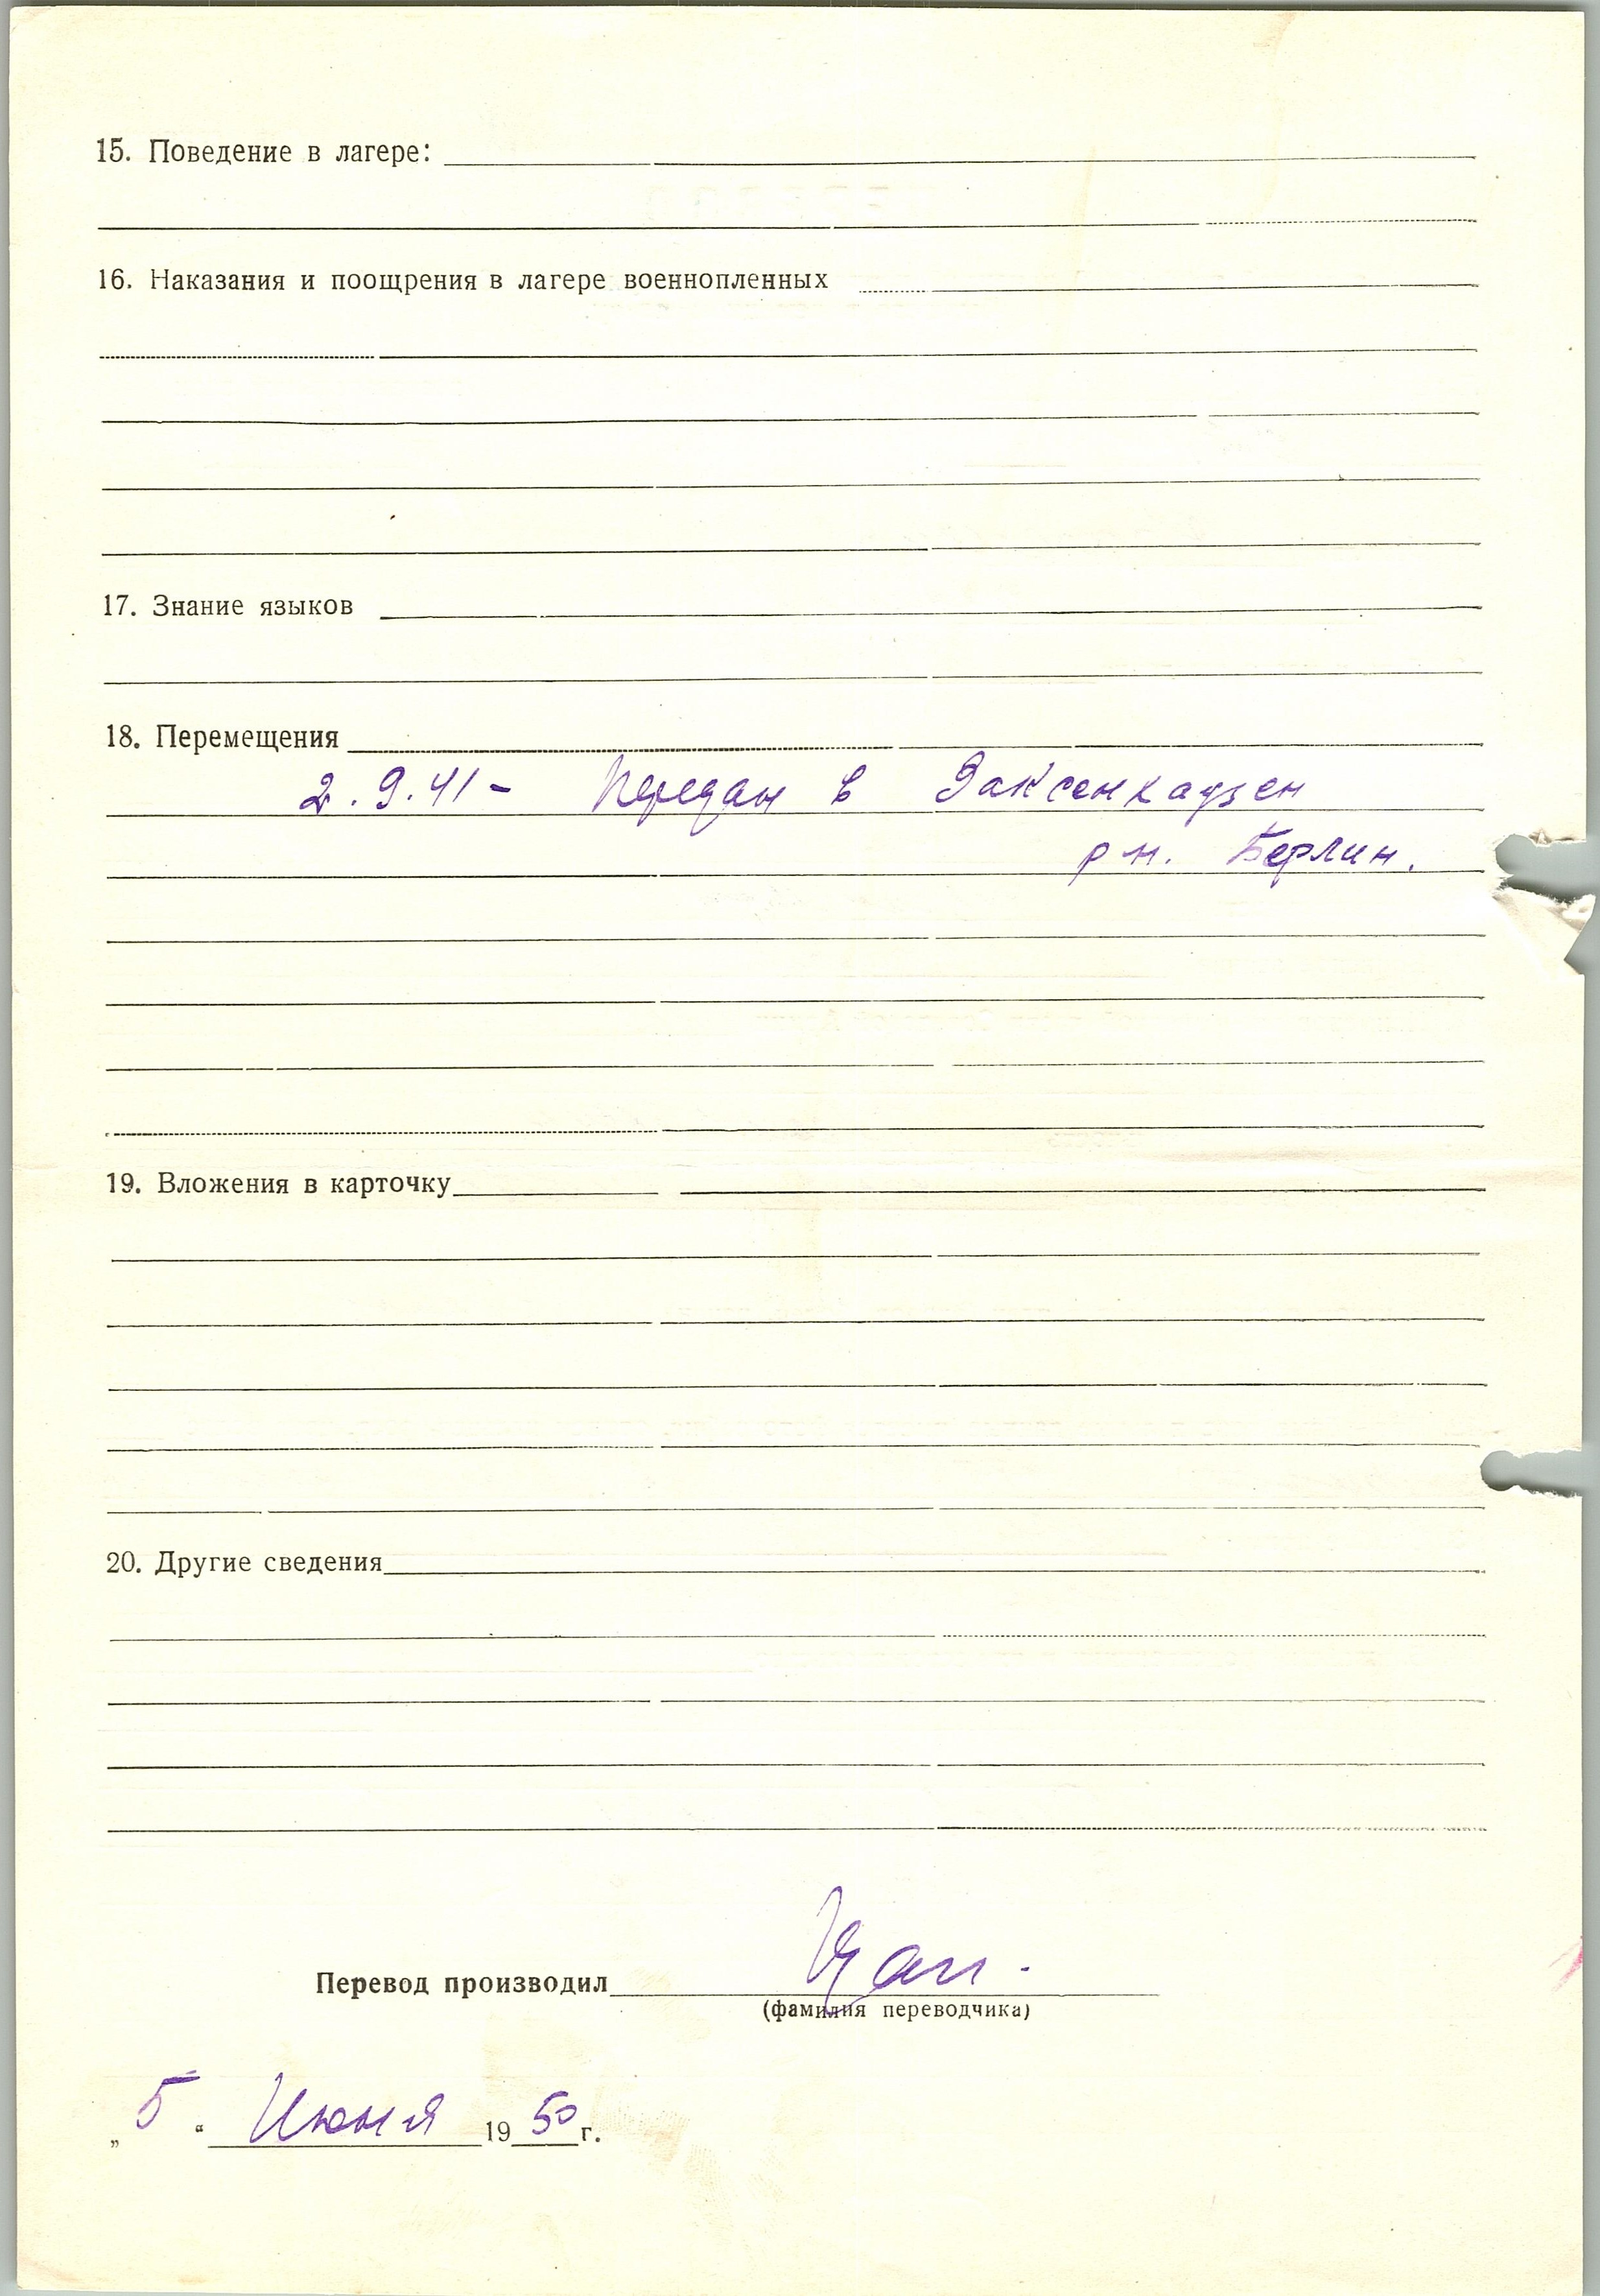 15. Поведение в лагере:
16. Наказания и поощрения в лагере военнопленных
17. Знание языков
18. Перемещения
2.9.41 - Передан в Заксенхаузен
р-н. Берлин.
19. Вложения в карточку
20. Другие сведения
Перевод производил
(фамилия переводчика)
„5“ Июня 1950 г.